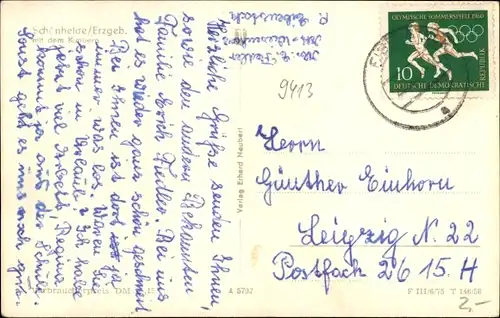 Schönheide/Erzgeb.
mit dem Kuhberg
Herzliche Grüße senden Ihnen,
sowie den anderen Bekannten
Familie Erich Fiedler. Bei uns
hat es wieder ganz schön geschneit.
Bei Ihnen ist dort ja
immer was los. Waren Sie
schon in Urlaub? Ich habe
jetzt viel Arbeit. Regina
kommt nun aus der Schule.
Sonst geht es uns noch gut.
Verbraucherpreis DM
A 5792
Verlag Erhard Neubert
9413
OLYMPISCHE SOMMERSPIELE 1960
10
DEUTSCHE DEMOKRATISCHE
REPUBLIK
Herrn
Günther Einhorn
Leipzig N. 22
Postfach 26 15. H
F III/6/75 T 146/58
2,-